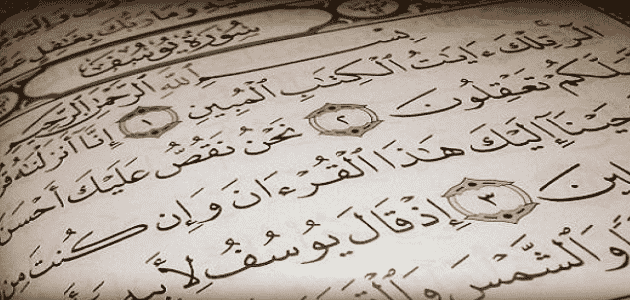 وَمَا رَبُّكَ بِغَٰفِلٍ
سُورَةُ يُوسُفَ
بِسْمِ ٱللَّهِ ٱلرَّحْمَٰنِ ٱلرَّحِيمِ
الٓر تِلْكَ ءَايَٰتُ ٱلْكِتَٰبِ ٱلْمُبِينِ ١ إِنَّآ أَنزَلْنَٰهُ
ـلَّكُمْ تَعْقِلُونَ ٢ نَحْنُ نَقُصُّ عَلَيْكَ أَحْسَنَ
ـحَيْنَآ إِلَيْكَ هَٰذَا ٱلْقُرْءَانَ وَإِن كُنتَ مِن
ـلِينَ ٣ إِذْ قَالَ يُوسُفُ لِأَبِيهِ
وَٱلشَّمْسَ وَٱلْقَمَرَ